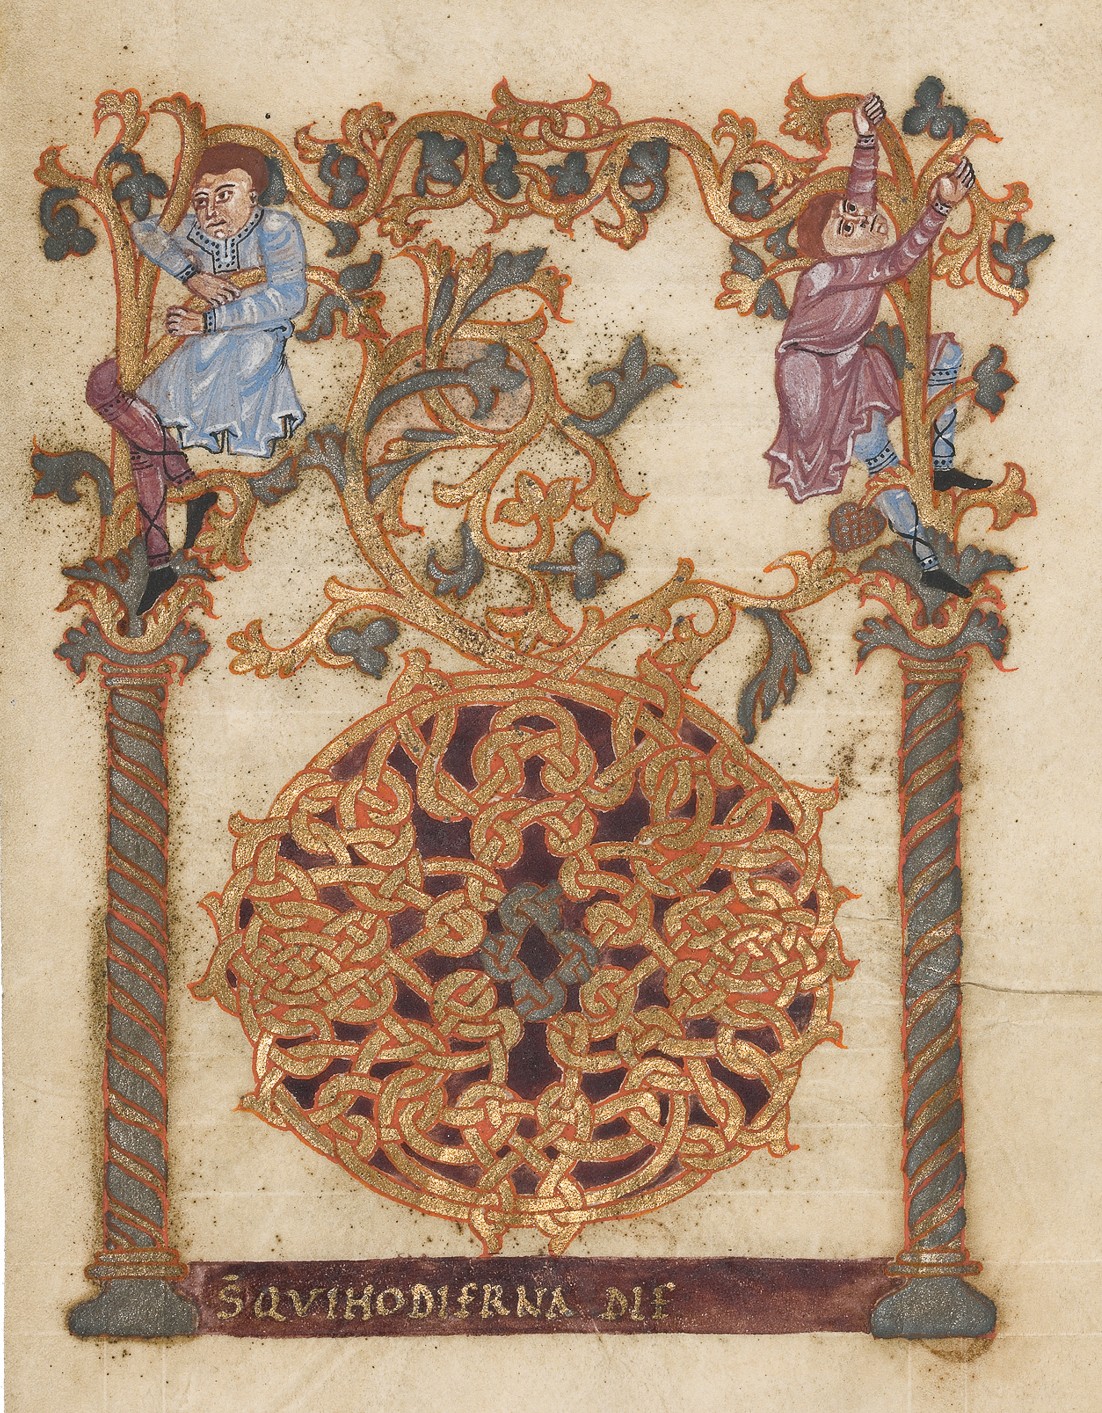 S̄ QVI HODIERNA DIE